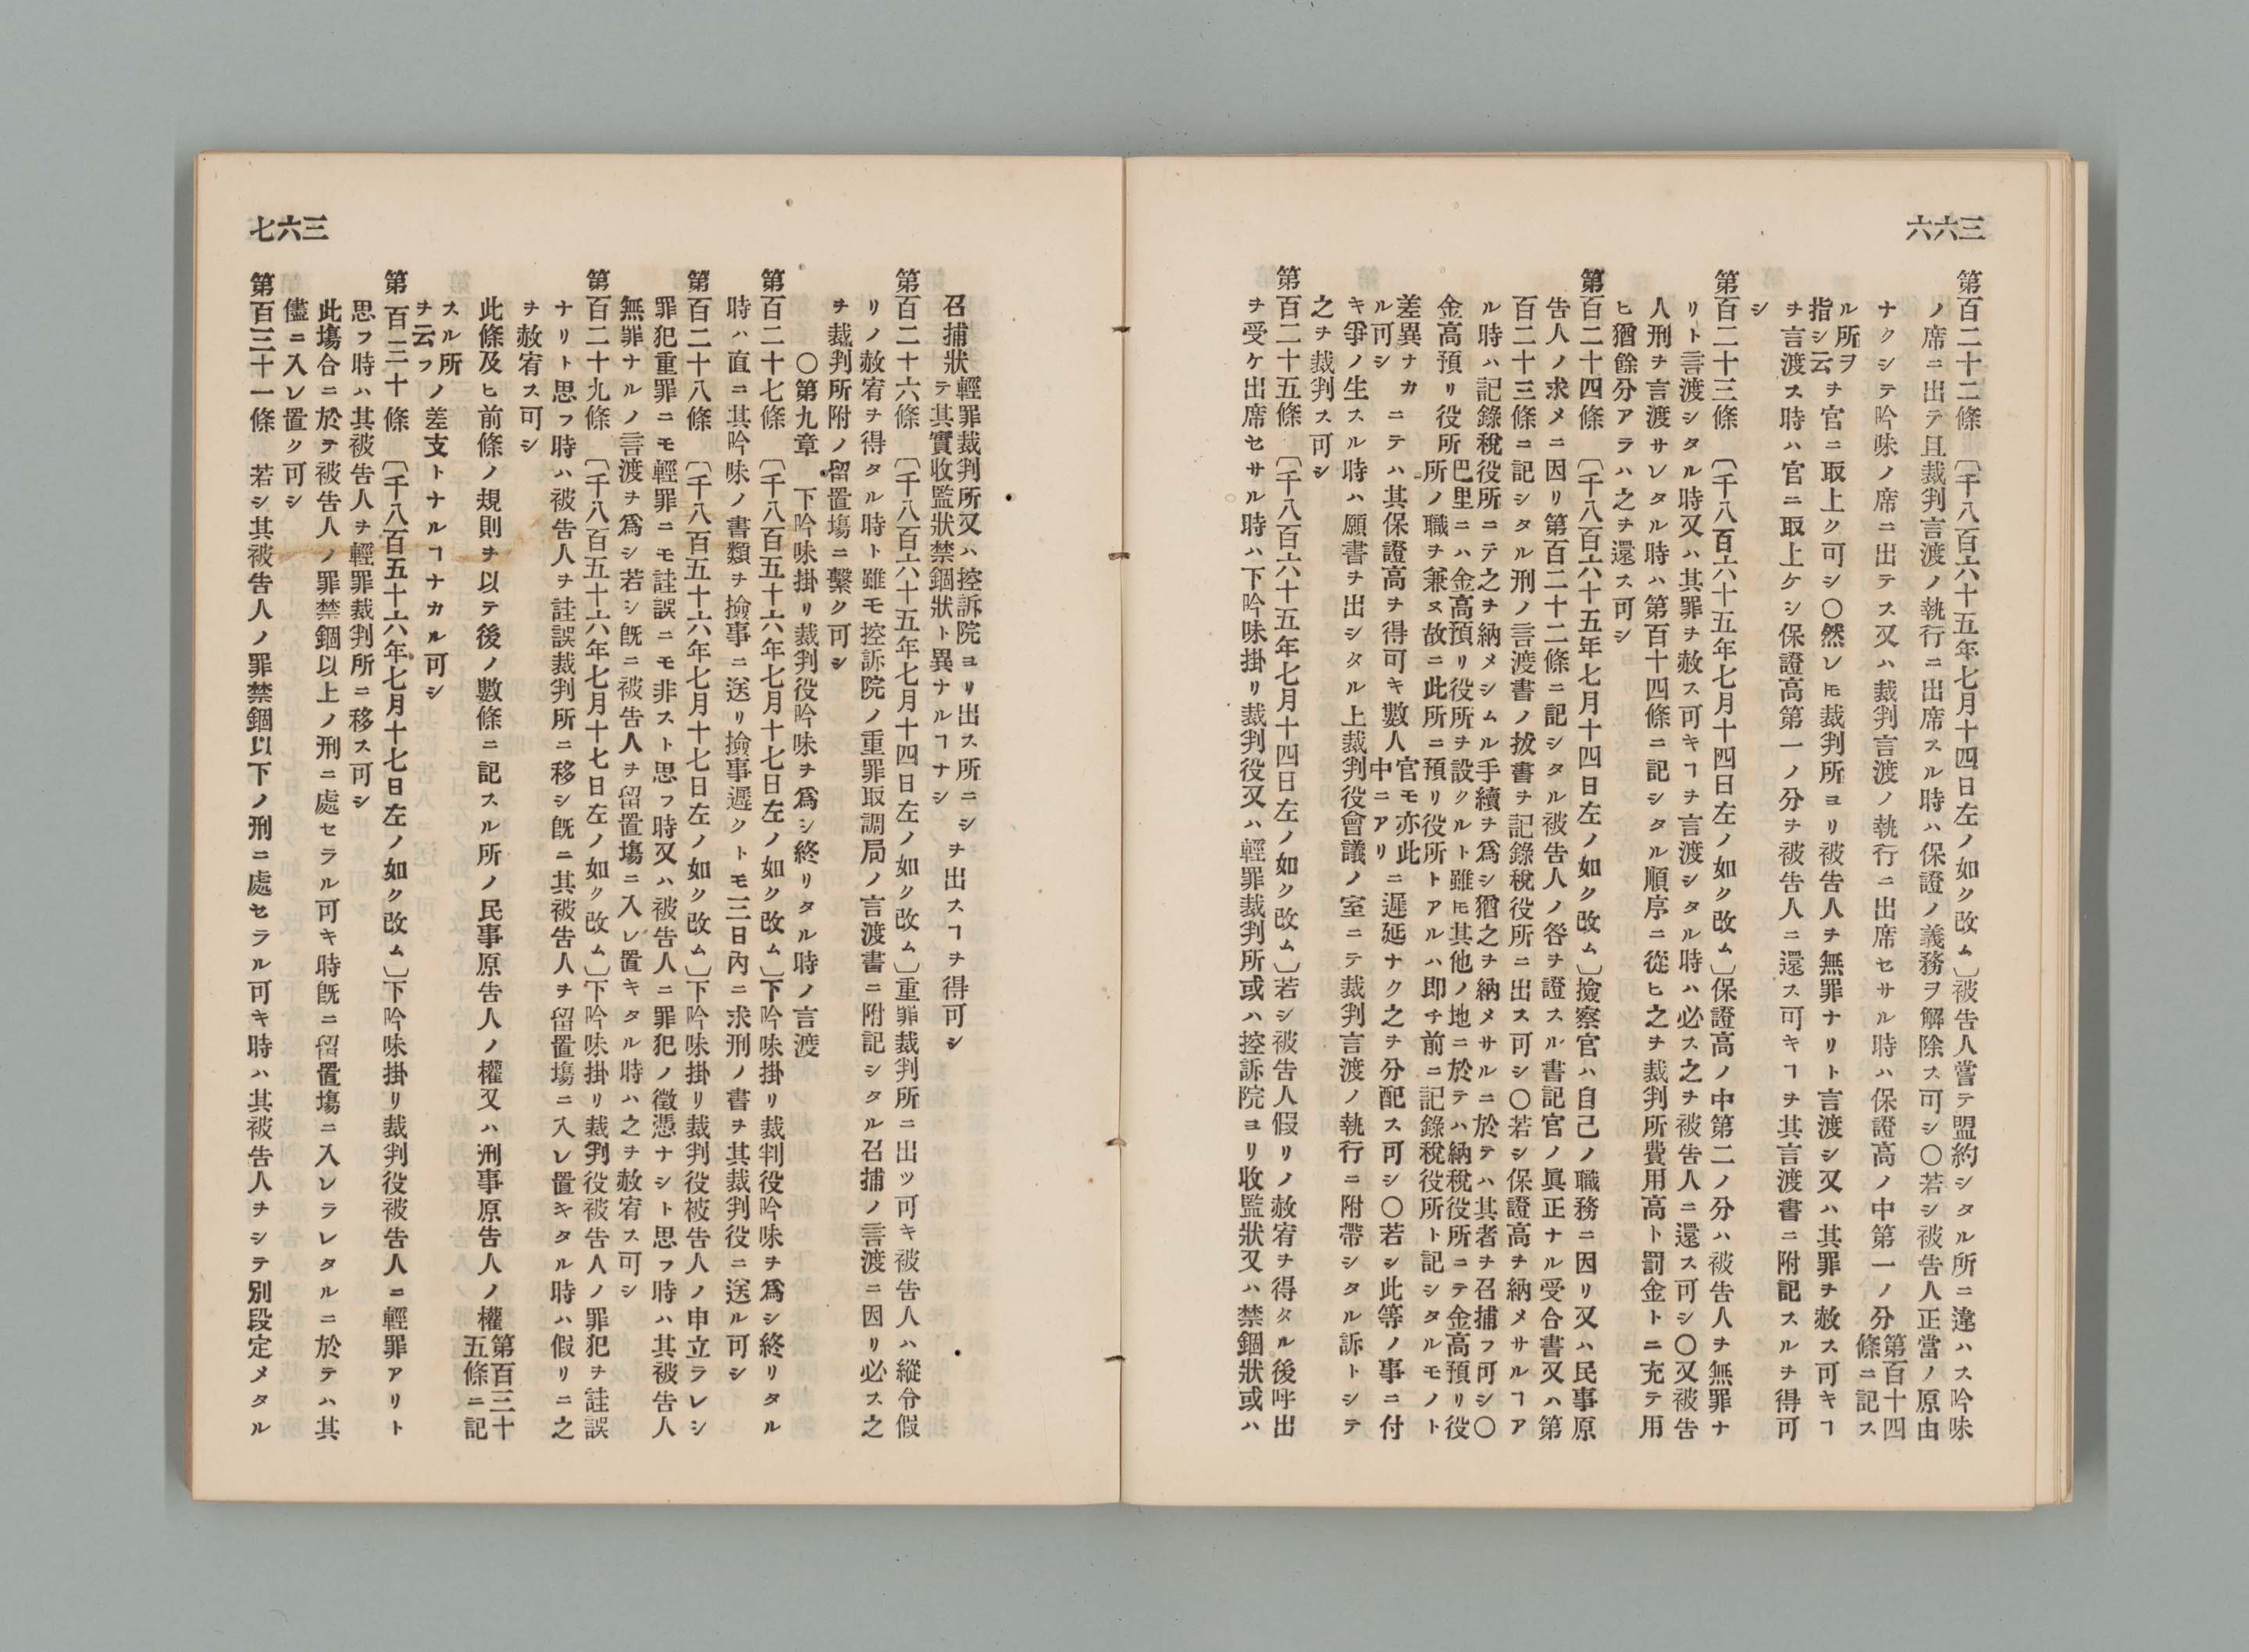 三六六
第百二十二條　〔千八百六十五年七月十四日左ノ如ク改ム〕被告人嘗テ盟約シタル所ニ違ハス吟味
ノ席ニ出テ且裁判言渡ノ執行ニ出席スル時ハ保證ノ義務ヲ解除ス可シ〇若シ被告人正當ノ原由
ナクシテ吟味ノ席ニ出テス又ハ裁判言渡ノ執行ニ出席セサル時ハ保證高ノ中第一ノ分第百十四條ニ記ス
ル所ヲ指シ云ヲ官ニ取上ク可シ〇然レ𪜈裁判所ヨリ被告人ヲ無罪ナリト言渡シ又ハ其罪ヲ赦ス可キヿ
ヲ言渡ス時ハ官ニ取上ケシ保證高第一ノ分ヲ被告人ニ還ス可キヿヲ其言渡書ニ附記スルヲ得可
シ
第百二十三條　〔千八百六十五年七月十四日左ノ如ク改ム〕保證高ノ中第二ノ分ハ被告人ヲ無罪ナ
リト言渡シタル時又ハ其罪ヲ赦ス可キヿヲ言渡シタル時ハ必ス之ヲ被告人ニ還ス可シ〇又被告
人刑ヲ言渡サレタル時ハ第百十四條ニ記シタル順序ニ從ヒ之ヲ裁判所費用高ト罰金トニ充テ用
ヒ猶餘分アラハ之ヲ還ス可シ
第百二十四條　〔千八百六十五年七月十四日左ノ如ク改ム〕撿察官ハ自己ノ職務ニ因リ又ハ民事原
告人ノ求メニ因リ第百二十二條ニ記シタル被告人ノ咎ヲ證スル書記官ノ眞正ナル受合書又ハ第
百二十三條ニ記シタル刑ノ言渡書ノ拔書ヲ記錄稅役所ニ出ス可シ〇若シ保證高ヲ納メサルヿア
ル時ハ記錄稅役所ニテ之ヲ納メシムル手續ヲ爲シ猶之ヲ納メサルニ於テハ其者ヲ召捕フ可シ〇
金高預リ役所巴里ニハ金高預リ役所ヲ設クルト雖𪜈其他ノ地ニ於テハ納稅役所ニテ金高預リ役
所ノ職ヲ兼ヌ故ニ此所ニ預リ役所トアルハ即チ前ニ記錄稅役所ト記シタルモノト
差異ナカル可シニテハ其保證高ヲ得可キ數人官モ亦此中ニアリニ遲延ナク之ヲ分配ス可シ〇若シ此等ノ事ニ付
キ爭ノ生スル時ハ願書ヲ出シタル上裁判役會議ノ室ニテ裁判言渡ノ執行ニ附帶シタル訴トシテ
之ヲ裁判ス可シ
第百二十五條　〔千八百六十五年七月十四日左ノ如ク改ム〕若シ被告人假リノ赦宥ヲ得タル後呼出
ヲ受ケ出席セサル時ハ下吟味掛リ裁判役又ハ輕罪裁判所或ハ控訴院ヨリ收監狀又ハ禁錮狀或ハ
三六七
召捕狀輕罪裁判所又ハ控訴院ヨリ出ス所ニシテ其實收監狀禁錮狀ト異ナルヿナシヲ出スヿヲ得可シ
第百二十六條　〔千八百六十五年七月十四日左ノ如ク改ム〕重罪裁判所ニ出ツ可キ被告人ハ縱令假
リノ赦宥ヲ得タル時ト雖モ控訴院ノ重罪取調局ノ言渡書ニ附記シタル召捕ノ言渡ニ因リ必ス之
ヲ裁判所附ノ留置塲ニ繫ク可シ
〇第九章　下吟味掛リ裁判役吟味ヲ爲シ終リタル時ノ言渡
第百二十七條　〔千八百五十六年七月十七日左ノ如ク改ム〕下吟味掛リ裁判役吟味ヲ爲シ終リタル
時ハ直ニ其吟味ノ書類ヲ撿事ニ送リ撿事遲クトモ三日內ニ求刑ノ書ヲ其裁判役ニ送ル可シ
第百二十八條　〔千八百五十六年七月十七日左ノ如ク改ム〕下吟味掛リ裁判役被告人ノ申立ラレシ
罪犯重罪ニモ輕罪ニモ註誤ニモ非スト思フ時又ハ被告人ニ罪犯ノ徵憑ナシト思フ時ハ其被告人
無罪ナルノ言渡ヲ爲シ若シ旣ニ被告人ヲ留置塲ニ入レ置キタル時ハ之ヲ赦宥ス可シ
第百二十九條　〔千八百五十六年七月十七日左ノ如ク改ム〕下吟味掛リ裁判役被告人ノ罪犯ヲ註誤
ナリト思フ時ハ被告人ヲ註誤裁判所ニ移シ旣ニ其被告人ヲ留置塲ニ入レ置キタル時ハ假リニ之
ヲ赦宥ス可シ
此條及ヒ前條ノ規則ヲ以テ後ノ數條ニ記スル所ノ民事原告人ノ權又ハ刑事原告人ノ權第百三十五條ニ記
スル所ヲ云フノ差支トナルヿナカル可シ
第百三十條　〔千八百五十六年七月十七日左ノ如ク改ム〕下吟味掛リ裁判役被告人ニ輕罪アリト
思フ時ハ其被告人ヲ輕罪裁判所ニ移ス可シ
此塲合ニ於テ被告人ノ罪禁錮以上ノ刑ニ處セラル可キ時旣ニ留置塲ニ入レラレタルニ於テハ其
儘ニ入レ置ク可シ
第百三十一條　若シ其被告人ノ罪禁錮以下ノ刑ニ處セラル可キ時ハ其被告人ヲシテ別段定メタル